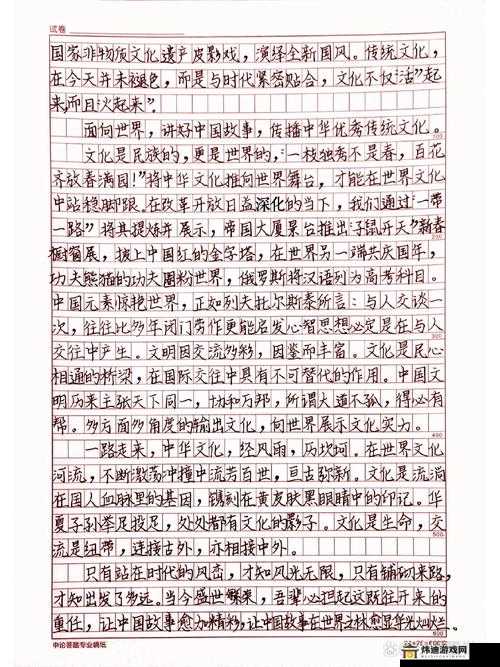 试卷
国家非物质文化遗产皮影戏，演绎全新国风。传统文化，
在今天并未褪色，而是与时代紧密贴合，文化不仅“活”起
来，而且火起来”。
面向世界，讲好中国故事，传播中华优秀传统文化。
文化是民族的，更是世界的，“一枝独秀不是春，百花
齐放春满园！”将中华文化推向世界舞台，才能在世界文化
中站稳脚跟。在改革开放日益深化的当下，我们通过“一带
一路”将其提炼并展示，帝国大厦景台推出“子鼠开天”新春
橱窗展，披上中国红的金字塔，在世界另一端共庆国年，
功夫熊猫的功夫圈粉世界，俄罗斯将汉语列为高考科目。
中国元素惊艳世界，正如列夫托尔斯泰所言：与人交谈一
次，往往比多年闭门劳作更能启发心智思想必定是在与人
交往中产生。文明因交流多彩，因鉴而丰富。文化是民心
相通的桥梁，在国际交往中具有不可替代的作用。中国文
明历来主张天下同一，协和万邦，所谓大道不孤，得必有
帮。多方面多角度的输出文化，向世界展示文化实力。
一路走来，中华文化，经风雨，历坎坷。在世界文化
河流，不断激荡冲撞中流芳百世，亘古弥新。文化是流淌
在国人血脉里的基因，镌刻在黄皮肤黑眼睛中的印记。华
夏子孙举足投足，处处都有文化的影子。文化是生命，交
流是纽带，连接古外，亦相接中外。
只有站在时代的风峦，才知风光无限，只有铺砌来路，
才知出发了多远。当今盛世繁来，吾辈必担起这既往开来的
重任，让中国故事愈加精彩，让中国故事在世界之林愈显华光灿兰。
申论答题专业稿纸
25×24=600字
炜迪游戏网